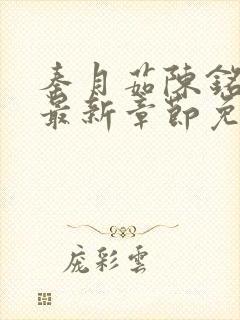 秦月茹陳銘
最新章節免
龐彩雲